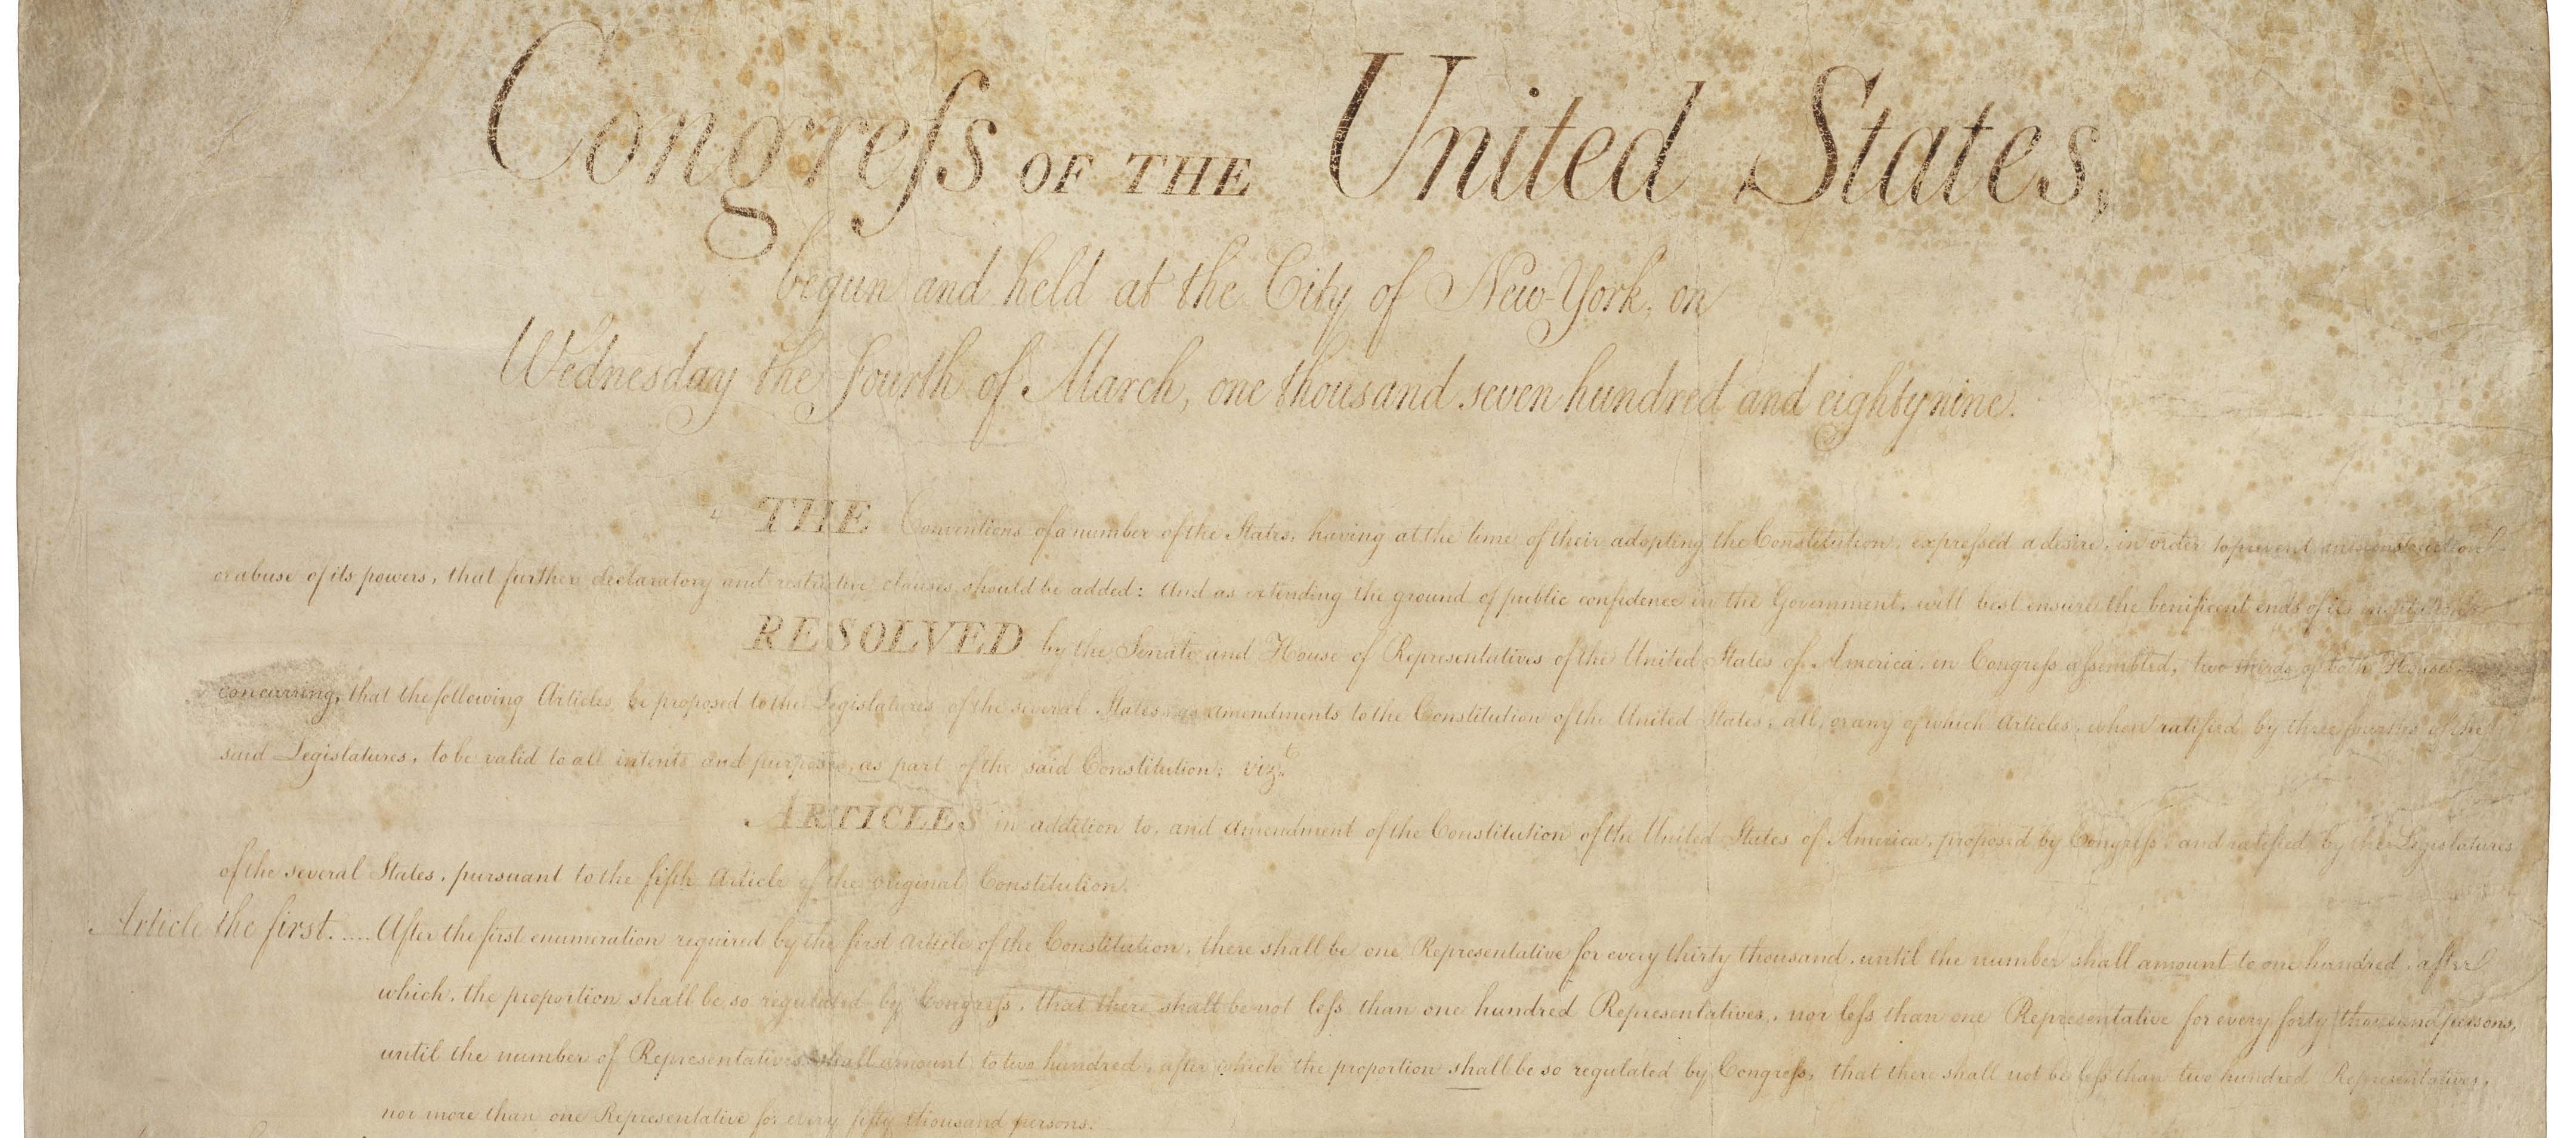 Congreſs OF THE United States,
begun and held at the City of New-York, on
Wednesday the fourth of March, one thousand seven hundred and eighty nine.
THE Conventions of a number of the States, having at the time of their adopting the Constitution, expreſsed a desire, in order to prevent misconstruction
or abuse of its powers, that further declaratory and restrictive clauses should be added: And as extending the ground of public confidence in the Government, will best ensure the benificent ends of its institution
RESOLVED by the Senate and House of Representatives of the United States of America, in Congreſs aſsembled, two thirds of both Houses
concurring, that the following Articles be proposed to the Legislatures of the several States, as amendments to the Constitution of the United States, all, or any of which Articles, when ratified by three fourths of the
said Legislatures, to be valid to all intents and purposes, as part of the said Constitution; vizt
ARTICLES in addition to, and Amendment of the Constitution of the United States of America, proposed by Congreſs, and ratified by the Legislatures
of the several States, pursuant to the fifth Article of the original Constitution.
Article the first..... After the first enumeration required by the first Article of the Constitution, there shall be one Representative for every thirty thousand, until the number shall amount to one hundred, after
which, the proportion shall be so regulated by Congreſs, that there shall be not leſs than one hundred Representatives, nor leſs than one Representative for every forty thousand persons,
until the number of Representatives shall amount to two hundred, after which the proportion shall be so regulated by Congreſs, that there shall not be leſs than two hundred Representatives,
nor more than one Representative for every fifty thousand persons.